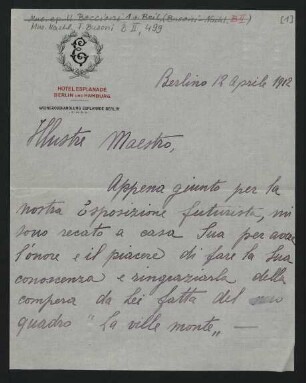 Mus. Nachl. F. Busoni B II, 499
[1]
HOTEL ESPLANADE
BERLIN UND HAMBURG
WEINGROSSHANDLUNG ESPLANADE BERLIN
Berlino 12 Aprile 1912
Illustre Maestro,
Appena giunto per la
nostra Esposizione futurista, mi
sono recato a casa Sua per aver
l'onore e il piacere di fare la Sua
conoscenza e ringraziarla della
compera da Lei fatta del mio
quadro "La ville monte", —